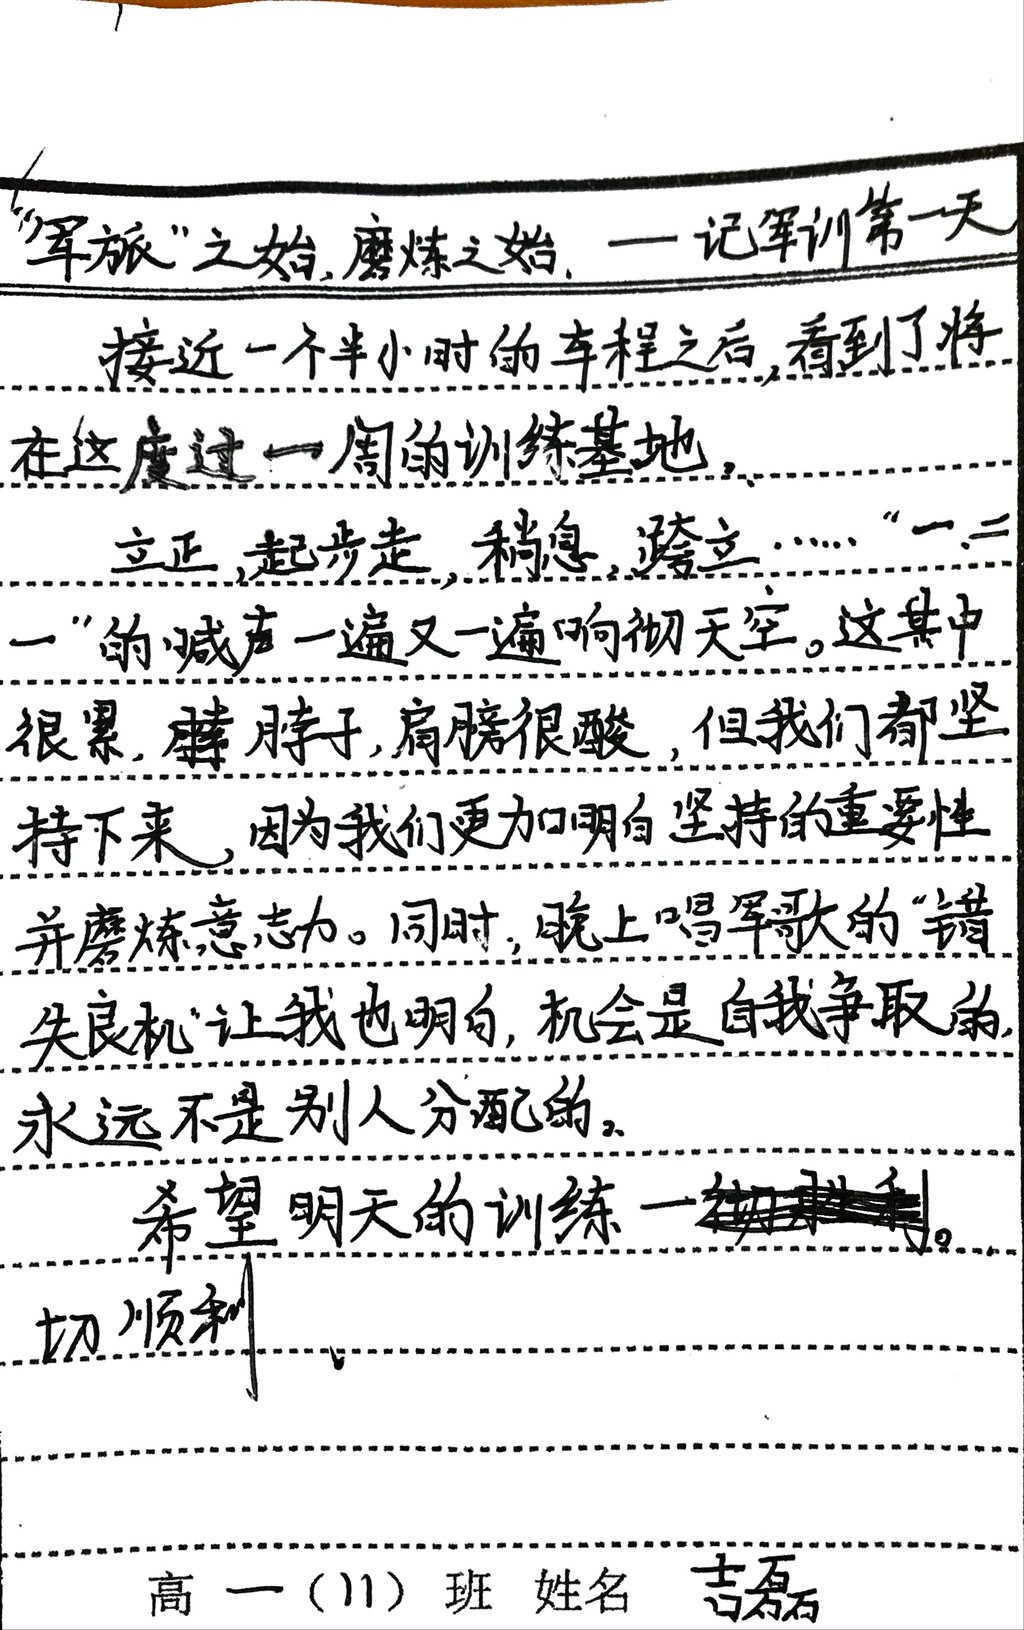 “军旅”之始,磨炼之始, —记军训第一天
接近一个半小时的车程之后,看到了将
在这度过一周的训练基地。
立正,起步走,稍息,跨立……“一.二
一”的喊声一遍又一遍响彻天空。这其中
很累,脖子,肩膀很酸,但我们都坚
持下来,因为我们更加明白坚持的重要性
并磨炼意志力。同时,晚上唱军歌的“错
失良机”让我也明白,机会是自我争取的,
永远不是别人分配的。
希望明天的训练一。
切顺利
高一(11)班 姓名 吉磊